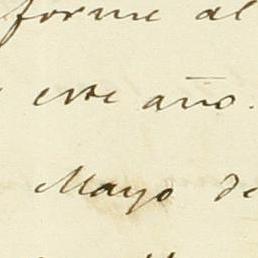 forme al
este año.
Mayo de